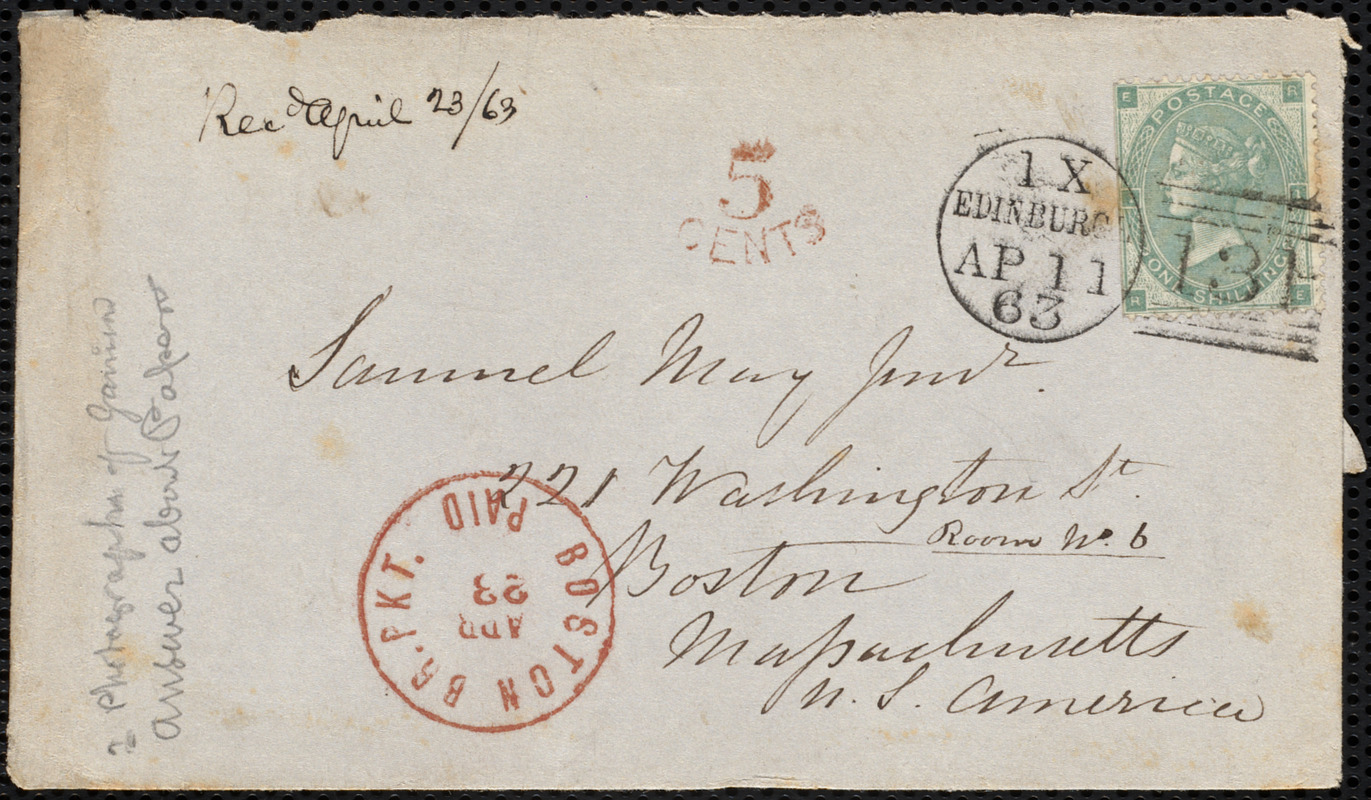 Recd April 23/63
5
CENTS
1 X
EDINBURGH
AP 11
63
E R
POSTAGE
ONE SHILLING
R E
131
Samuel May Junr.
221 Washington St.
Room No. 6
Boston
Massachusetts
U. S. America
BOSTON BR. PKT.
APR
23
PAID
2 Photographs of
Answer about Papers